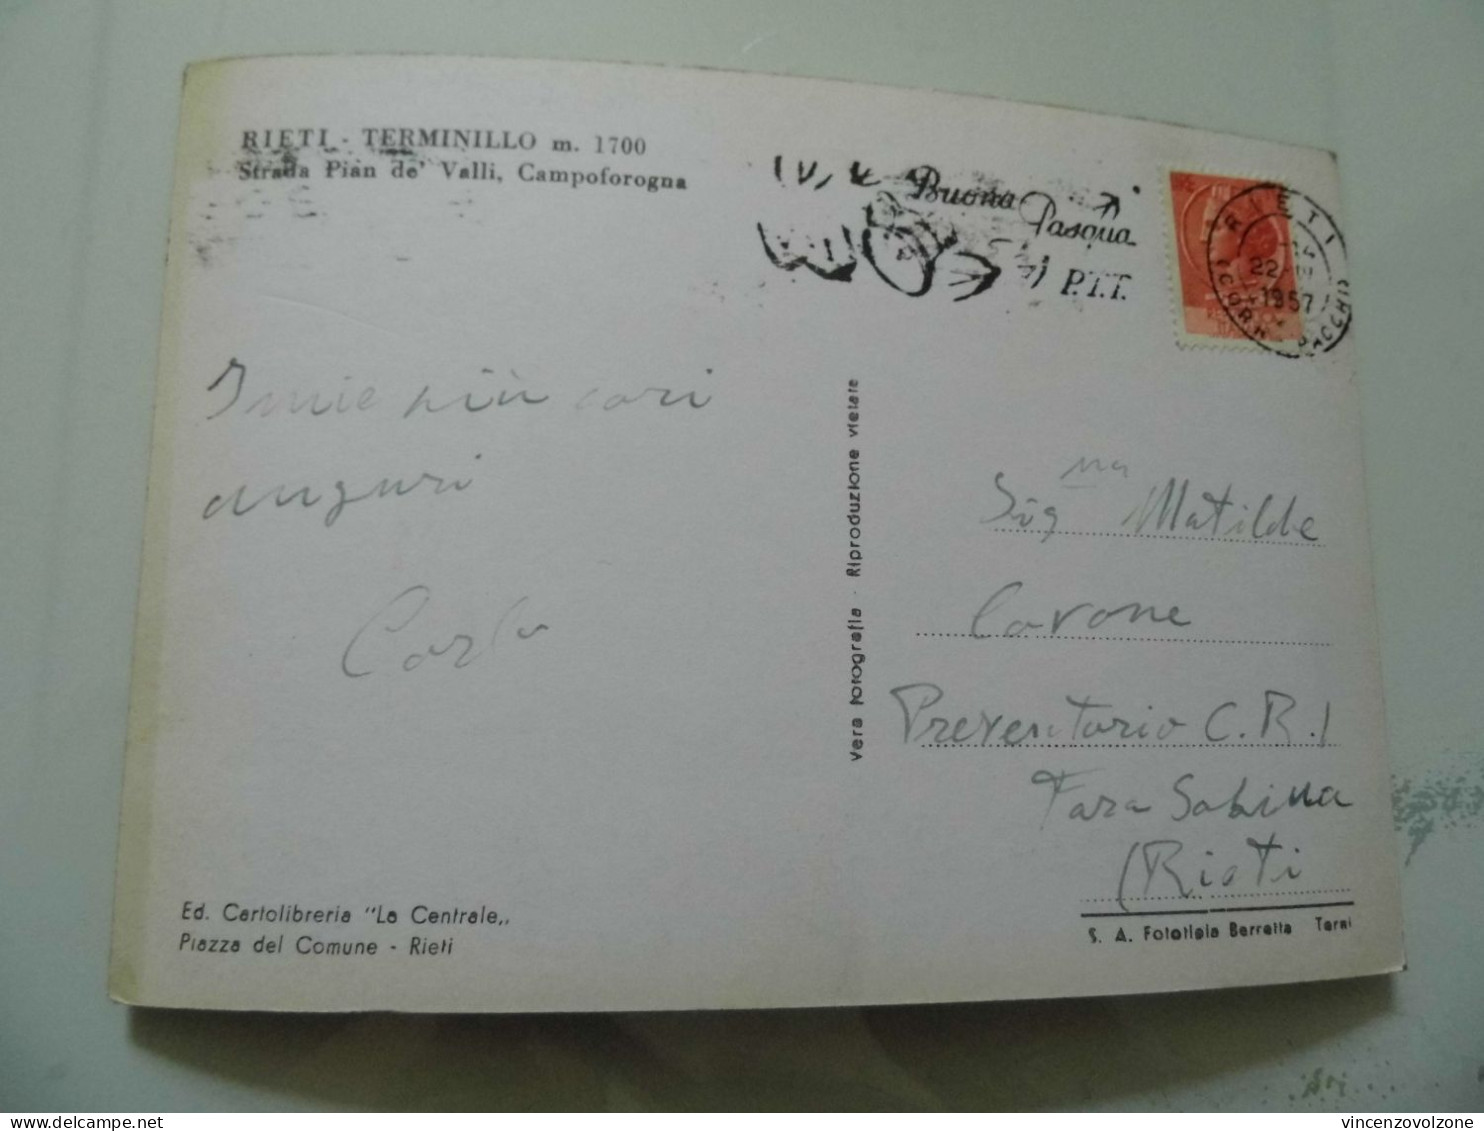 RIETI - TERMINILLO m. 1700
Strada Pian de' Valli, Campoforogna
Buona
Pasqua
P.T.T.
RIETI
22
1957
I miei più cari
auguri
Carla
vera fotografia - Riproduzione vietata
Sig.na Matilde
Carone
Preventorio C.R.I
Fara Sabina
(Rieti
Ed. Cartolibreria "La Centrale„
Piazza del Comune - Rieti
S. A. Fototipia Berretta Terni
vincenzovolzone